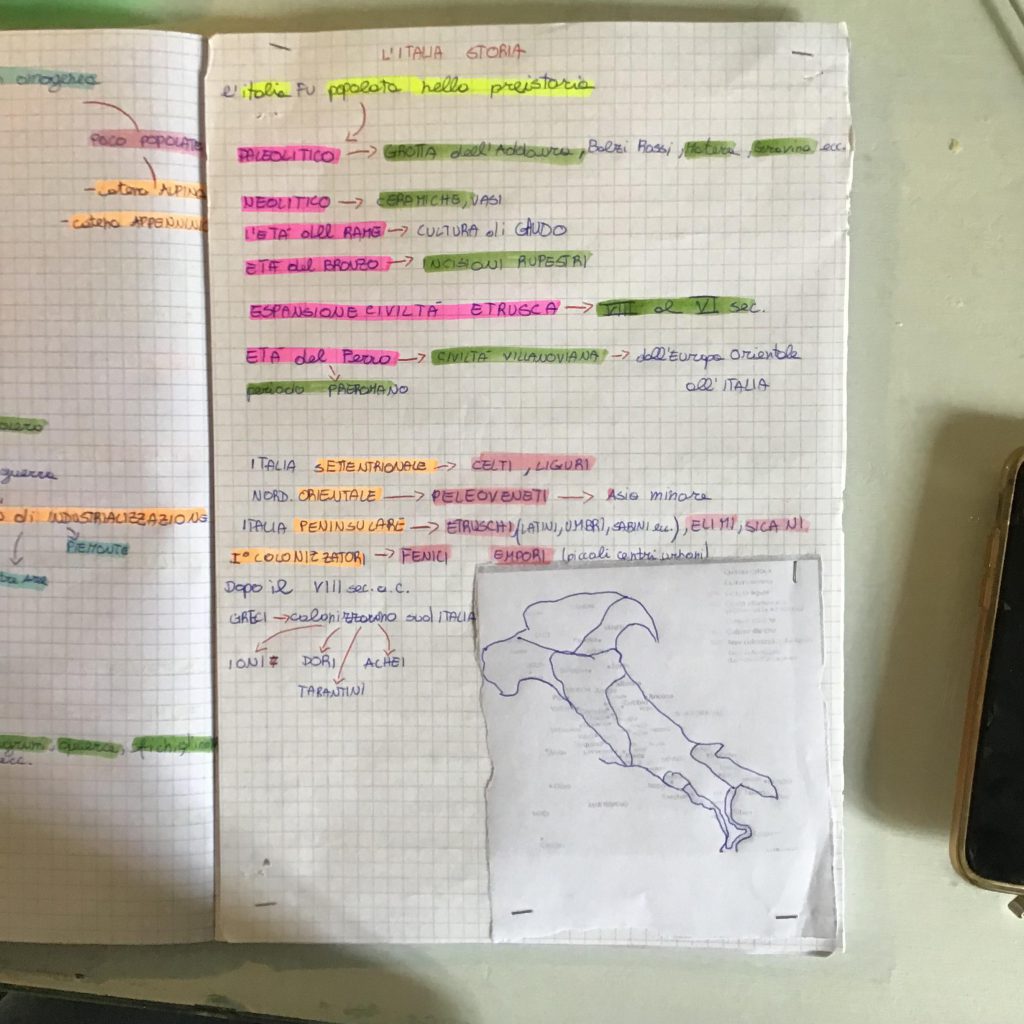 omogenea
POCO POPOLATE
- catena ALPINA
- catena APPENNINI
guerra
di INDUSTRIALIZZAZIONE
PIEMONTE
agrumi, querce, fichi
ecc.
L'ITALIA STORIA
L'italia FU popolata nella preistoria
PALEOLITICO → GROTTA dell'Addaura, Balzi Rossi, Matera, Gravina ecc.
NEOLITICO → CERAMICHE, VASI
L'ETÀ dell RAME → CULTURA di GAUDO
ETÀ del BRONZO → INCISIONI RUPESTRI
ESPANSIONE CIVILTÀ ETRUSCA → VIII al VI sec.
ETÀ del Ferro → CIVILTÀ VILLANOVIANA → dall'Europa Orientale
periodo PREROMANO all'ITALIA
ITALIA SETTENTRIONALE → CELTI, LIGURI
NORD. ORIENTALE → PELEOVENETI → Asia minore
ITALIA PENINSULARE → ETRUSCHI (LATINI, UMBRI, SABINI ecc.), ELIMI, SICANI
I° COLONIZZATORI → FENICI EMPORI (piccoli centri urbani)
Dopo il VIII sec. a.c.
GRECI → colonizzarono sud ITALIA
IONI DORI ACHEI
TARANTINI